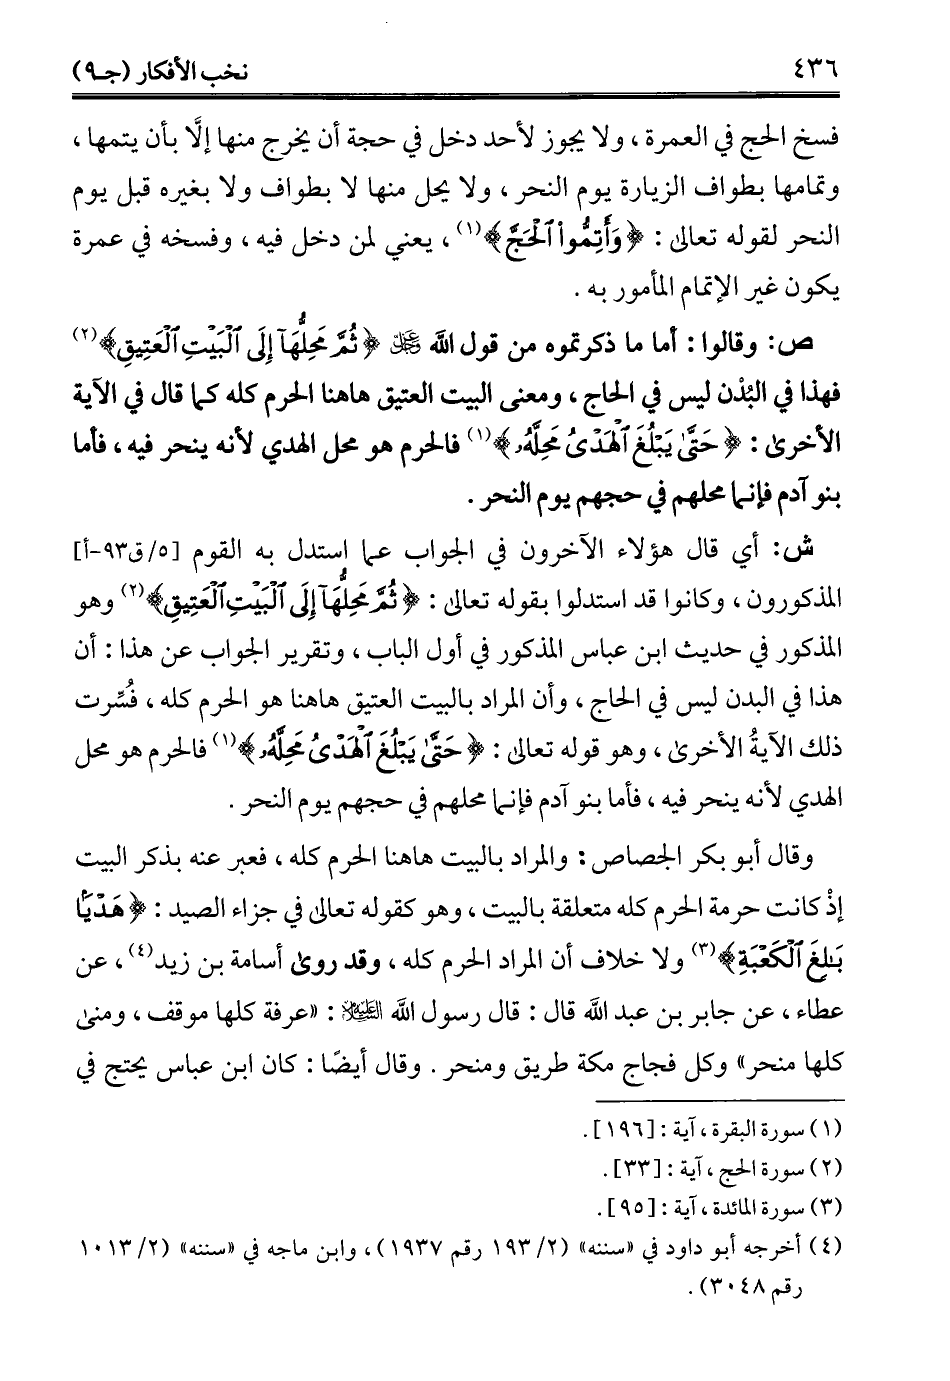 ٤٣٦ نخب الأفكار (جـ٩)
فسخ الحج في العمرة ، ولا يجوز لأحد دخل في حجة أن يخرج منها إلَّا بأن يتمها ،
وتمامها بطواف الزيارة يوم النحر ، ولا يحل منها لا بطواف ولا بغيره قبل يوم
النحر لقوله تعالى : ﴿وَأَتِمُّوا۟ ٱلْحَجَّ﴾(١) ، يعني لمن دخل فيه ، وفسخه في عمرة
يكون غير الإتمام المأمور به .
ص: وقالوا : أما ما ذكرتموه من قول الله ﷿ ﴿ثُمَّ مَحِلُّهَآ إِلَى ٱلْبَيْتِ ٱلْعَتِيقِ﴾(٢)
فهذا في البُدْن ليس في الحاج ، ومعنى البيت العتيق هاهنا الحرم كله كما قال في الآية
الأخرى : ﴿حَتَّىٰ يَبْلُغَ ٱلْهَدْىُ مَحِلَّهُۥ﴾(١) فالحرم هو محل الهدي لأنه ينحر فيه ، فأما
بنو آدم فإنما محلهم في حجهم يوم النحر .
ش: أي قال هؤلاء الآخرون في الجواب عما استدل به القوم [٥/ق٩٣-أ]
المذكورون ، وكانوا قد استدلوا بقوله تعالى : ﴿ثُمَّ مَحِلُّهَآ إِلَى ٱلْبَيْتِ ٱلْعَتِيقِ﴾(٢) وهو
المذكور في حديث ابن عباس المذكور في أول الباب ، وتقرير الجواب عن هذا : أن
هذا في البدن ليس في الحاج ، وأن المراد بالبيت العتيق هاهنا هو الحرم كله ، فُسِّرت
ذلك الآيةُ الأخرى ، وهو قوله تعالى : ﴿حَتَّىٰ يَبْلُغَ ٱلْهَدْىُ مَحِلَّهُۥ﴾(١) فالحرم هو محل
الهدي لأنه ينحر فيه ، فأما بنو آدم فإنما محلهم في حجهم يوم النحر .
وقال أبو بكر الجصاص : والمراد بالبيت هاهنا الحرم كله ، فعبر عنه بذكر البيت
إذْ كانت حرمة الحرم كله متعلقة بالبيت ، وهو كقوله تعالى في جزاء الصيد : ﴿هَدْيًۢا
بَـٰلِغَ ٱلْكَعْبَةِ﴾(٣) ولا خلاف أن المراد الحرم كله ، وقد روى أسامة بن زيد(٤) ، عن
عطاء ، عن جابر بن عبد الله قال : قال رسول الله عليه السلام : «عرفة كلها موقف ، ومنى
كلها منحر» وكل فجاج مكة طريق ومنحر . وقال أيضًا : كان ابن عباس يحتج في
(١) سورة البقرة ، آية : [١٩٦] .
(٢) سورة الحج ، آية : [٣٣] .
(٣) سورة المائدة ، آية : [٩٥] .
(٤) أخرجه أبو داود في «سننه» (٢/ ١٩٣ رقم ١٩٣٧) ، وابن ماجه في «سننه» (٢/ ١٠١٣
رقم ٣٠٤٨) .